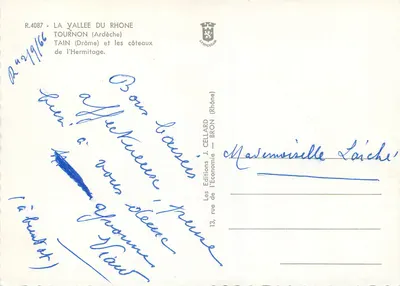 R.4087 - LA VALLEE DU RHONE
TOURNON (Ardèche)
TAIN (Drôme) et les côteaux
de l'Hermitage.
2/9/66
Bons baisers
affectueux
bien à vous deux
(à bientôt)
Les Editions J. CELLARD
13, rue de l'Economie - BRON (Rhône)
Mademoiselle Laïché